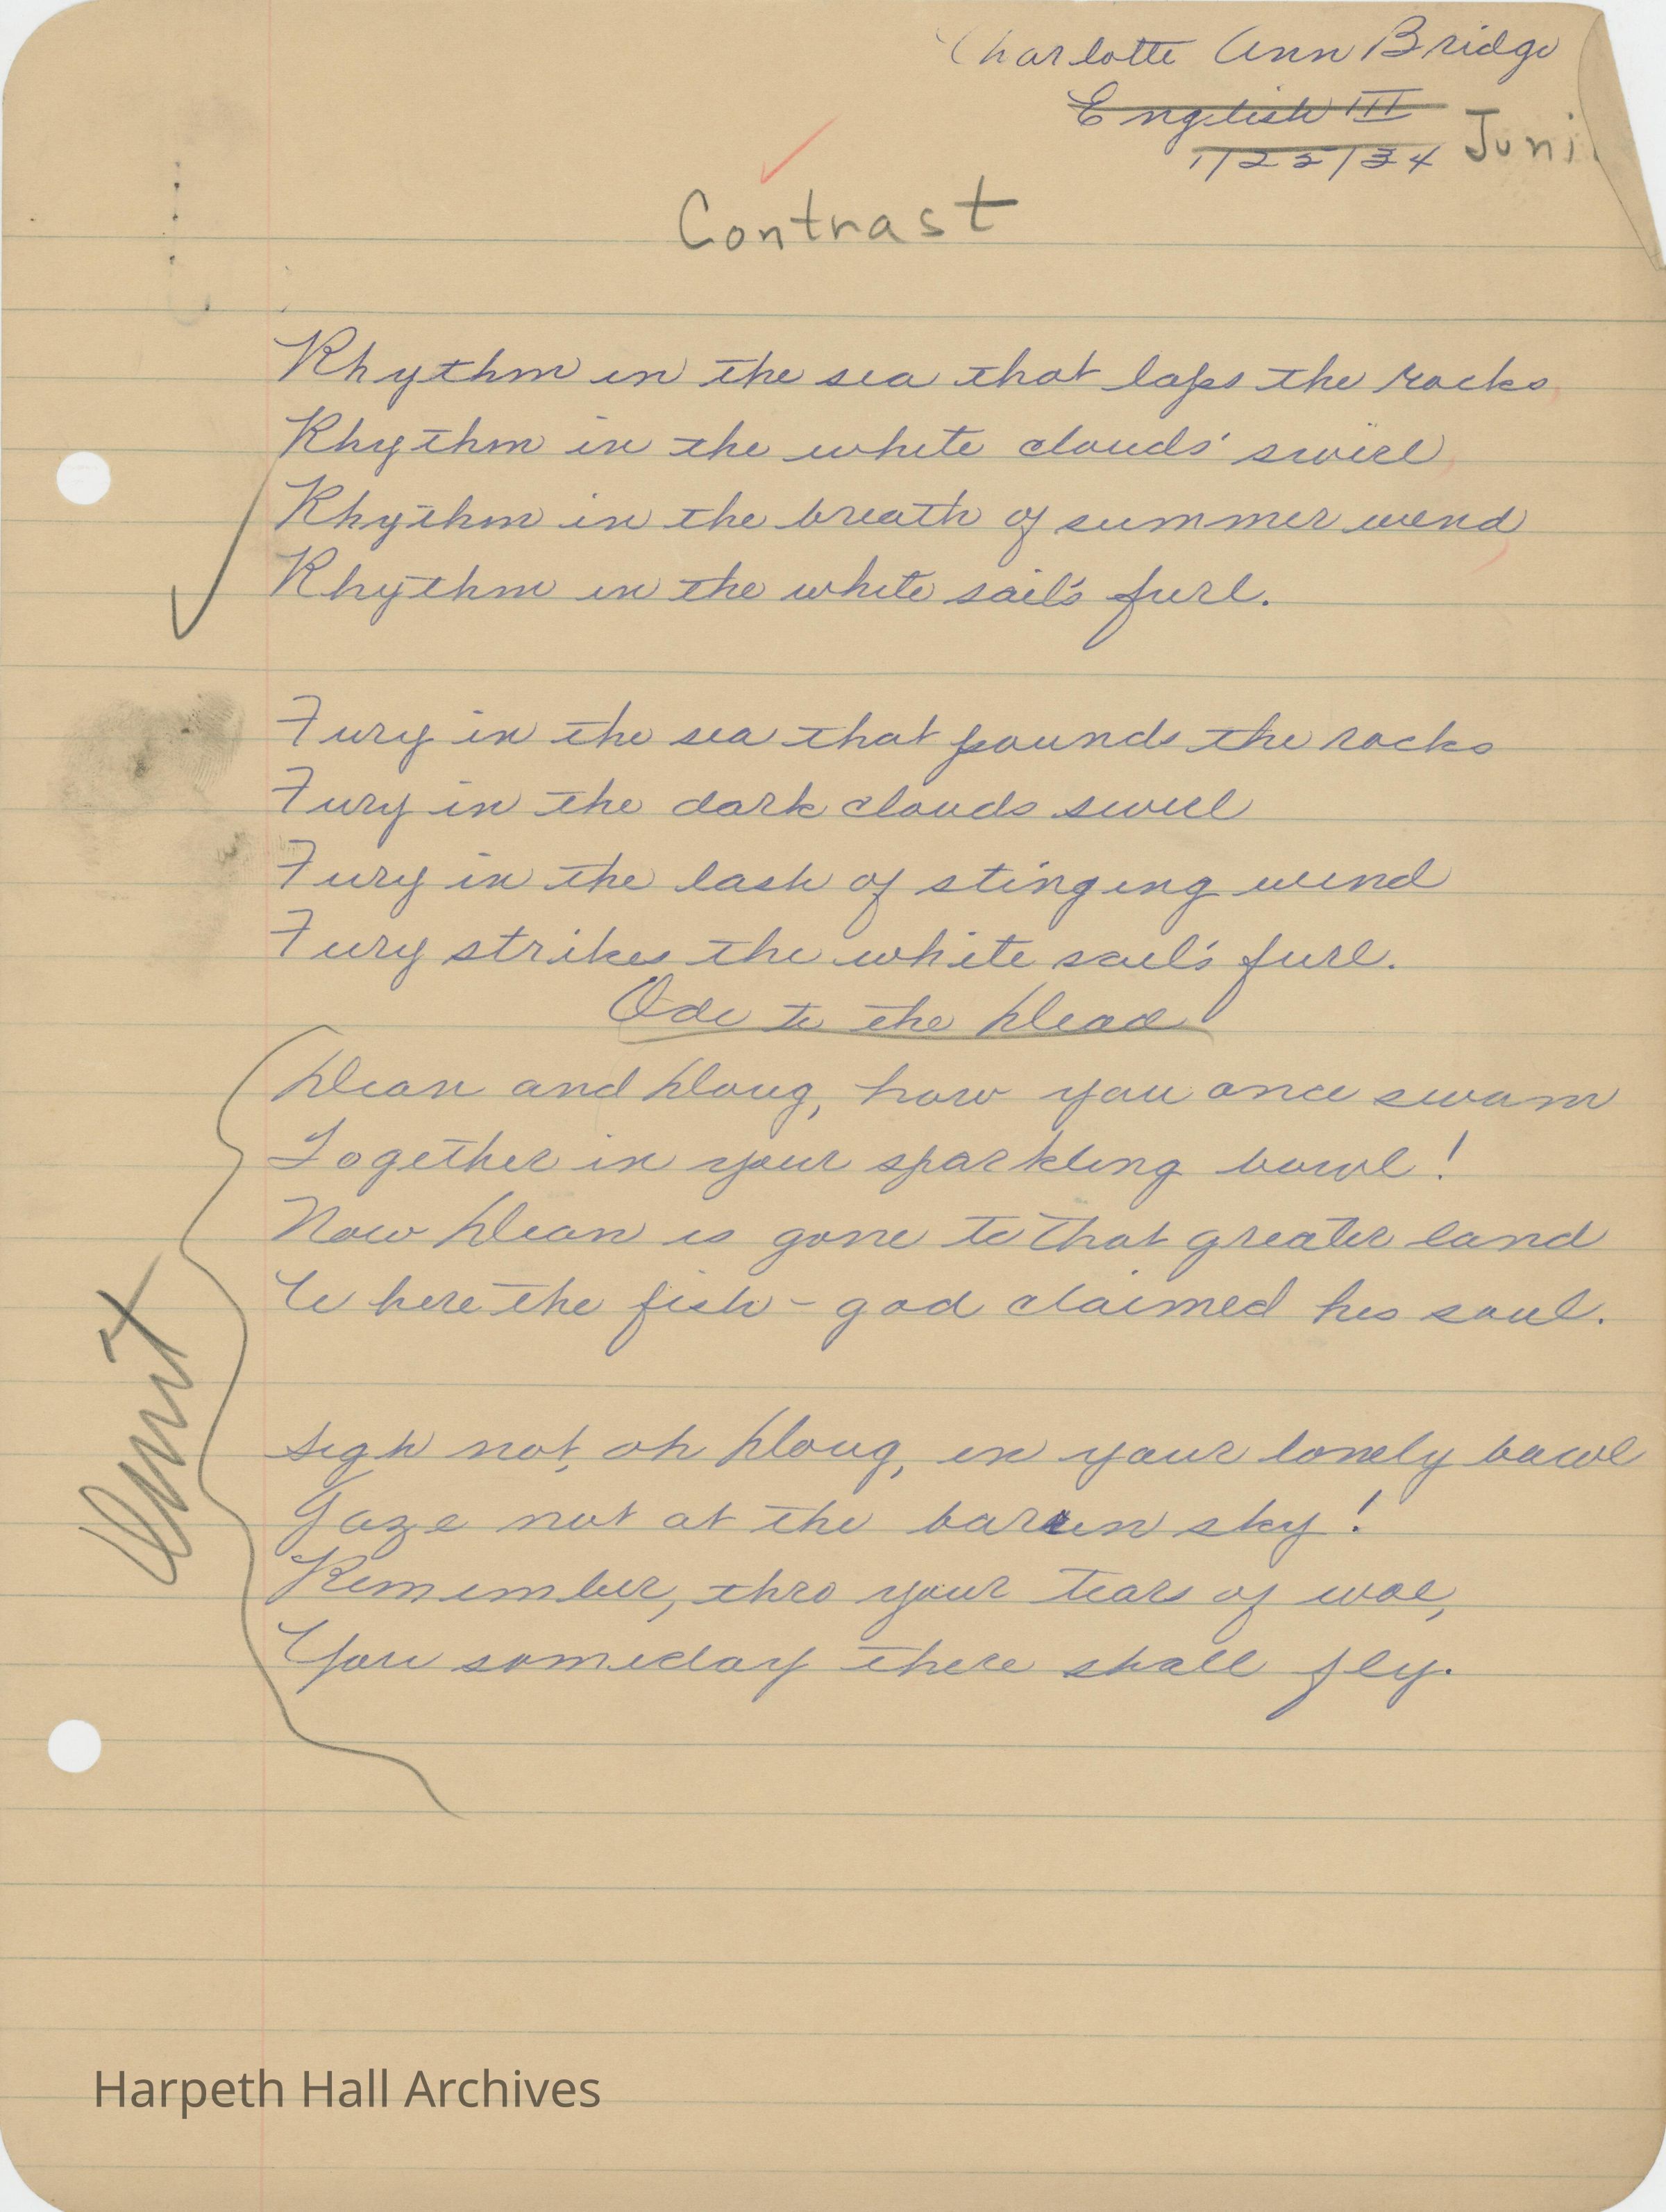 Charlotte Ann Bridge
English III
1/22/34 Juni
Contrast
Rhythm in the sea that laps the rocks,
Rhythm in the white clouds' swirl,
Rhythm in the breath of summer wind,
Rhythm in the white sail's furl.
Fury in the sea that pounds the rocks
Fury in the dark clouds swirl
Fury in the lash of stinging wind
Fury strikes the white sail's furl.
Ode to the Dead
Dean and Doug, how you once swam
Together in your sparkling bowl!
Now Dean is gone to that greater land
Where the fish-god claimed his soul.
Omit
Sigh not, oh Doug, in your lonely bowl
Gaze not at the barren sky!
Remember, thro your tears of woe,
You someday there shall fly.
Harpeth Hall Archives